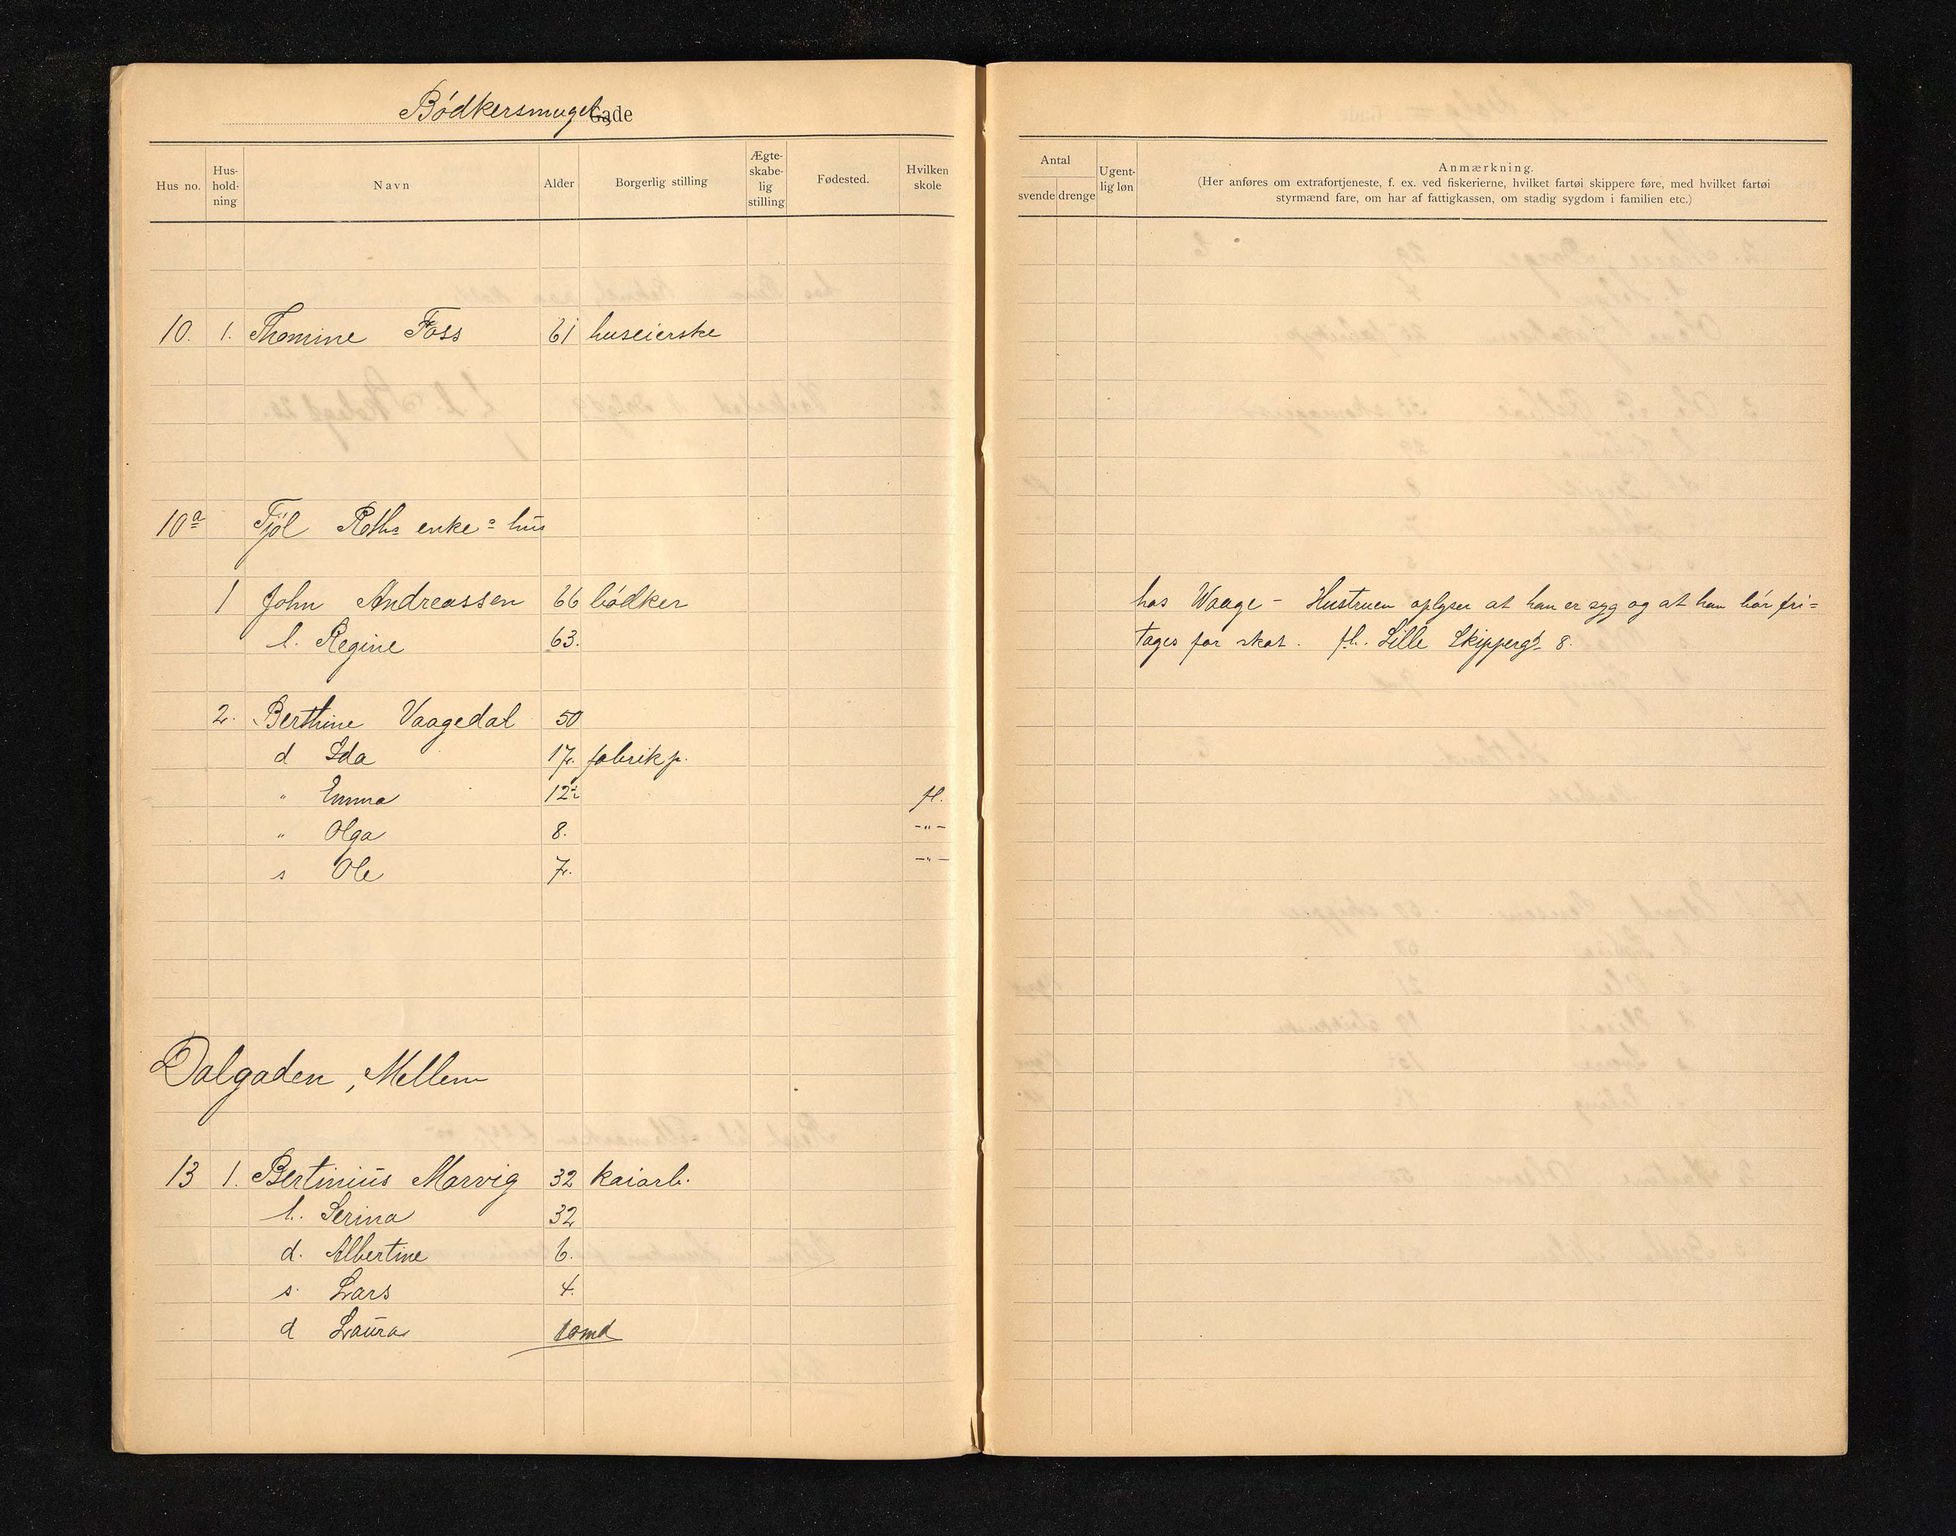 Bødkersmuget Gade
Hus no. Hus-hold-ning Navn Alder Borgerlig stilling Ægte-skabe-lig stilling Fødested. Hvilken skole
10. 1. Thomine Foss 61 huseierske
10a Tjøl Roths enke=hus
1 John Andreassen 66 bødker
h. Regine 63.
2. Berthine Vaagedal 50
d Ida 17. fabrikp.
" Emma 12½ fl.
" Olga 8. -"-
s Ole 7. -"-
Dalgaden, Mellem
13 1. Bertinius Marvig 32 kaiarb.
h. Serina 32
d. Albertine 6.
s. Lars 4.
d Laura 10md
Antal
svende drenge Ugent-lig løn Anmærkning.
(Her anføres om extrafortjeneste, f. ex. ved fiskerierne, hvilket fartøi skippere føre, med hvilket fartøi
styrmænd fare, om har af fattigkassen, om stadig sygdom i familien etc.)
hos Waage - Hustruen oplyser at han er syg og at han bør fri=
tages for skat. fh. Lille Skipperg. 8.